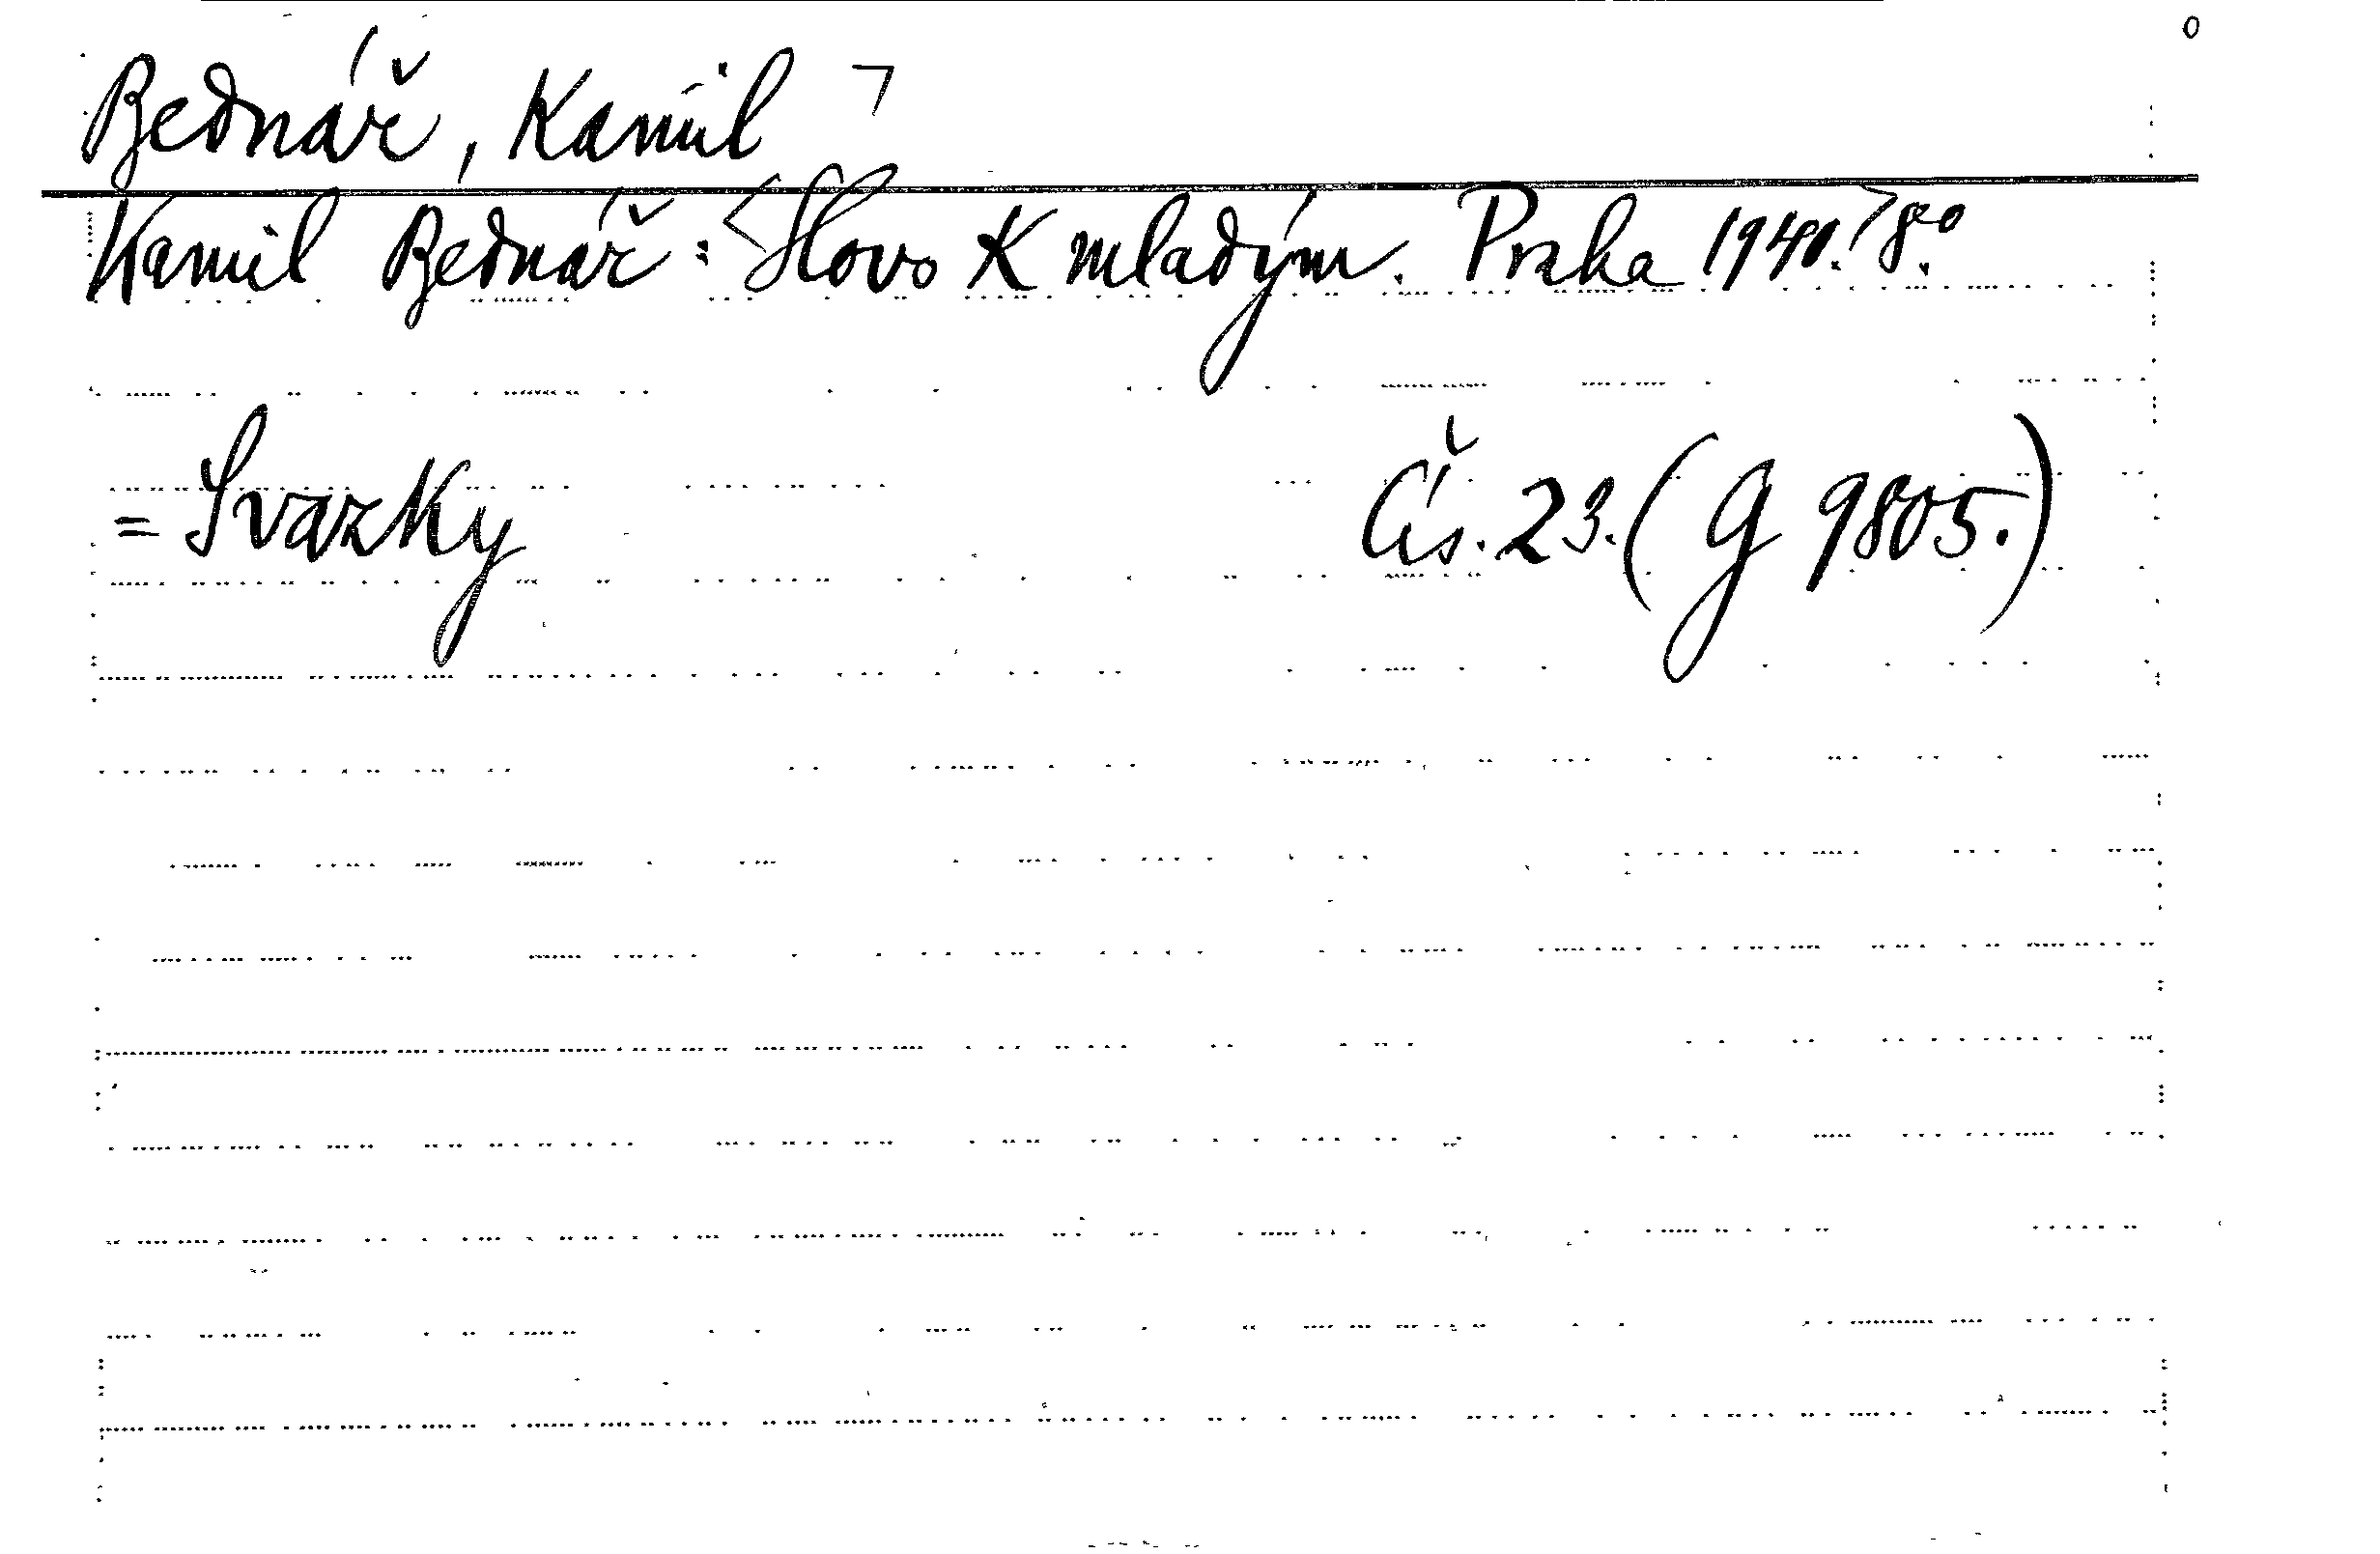 Bednář, Kamil ¬
Kamil Bednář: <Slovo k mladým. Praha 1940.> 8°.
= Svazky Čís. 23. (G 9805.)